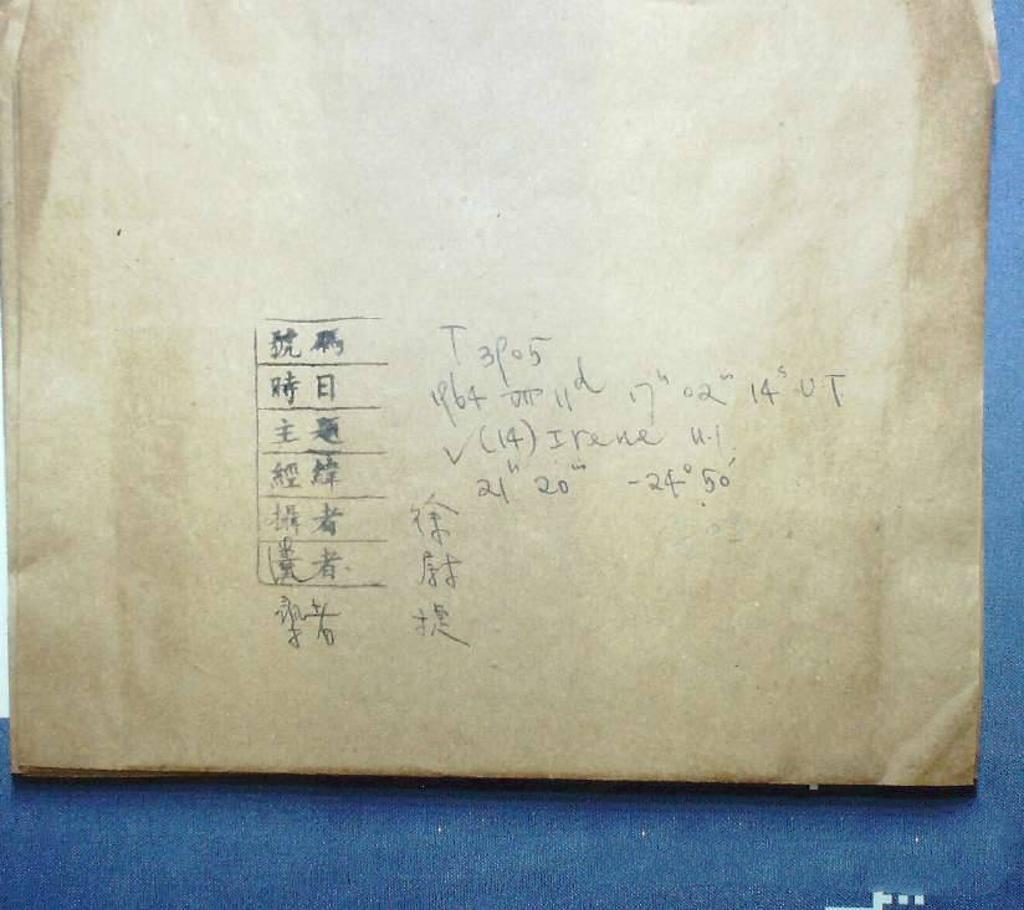 號碼 T 3905
時日 1964 VIII 11d 17h 02m 14s UT
主題 √(14) Irene
經緯 21h 20m -24°50′
攝者 徐
者 尉
者 捷